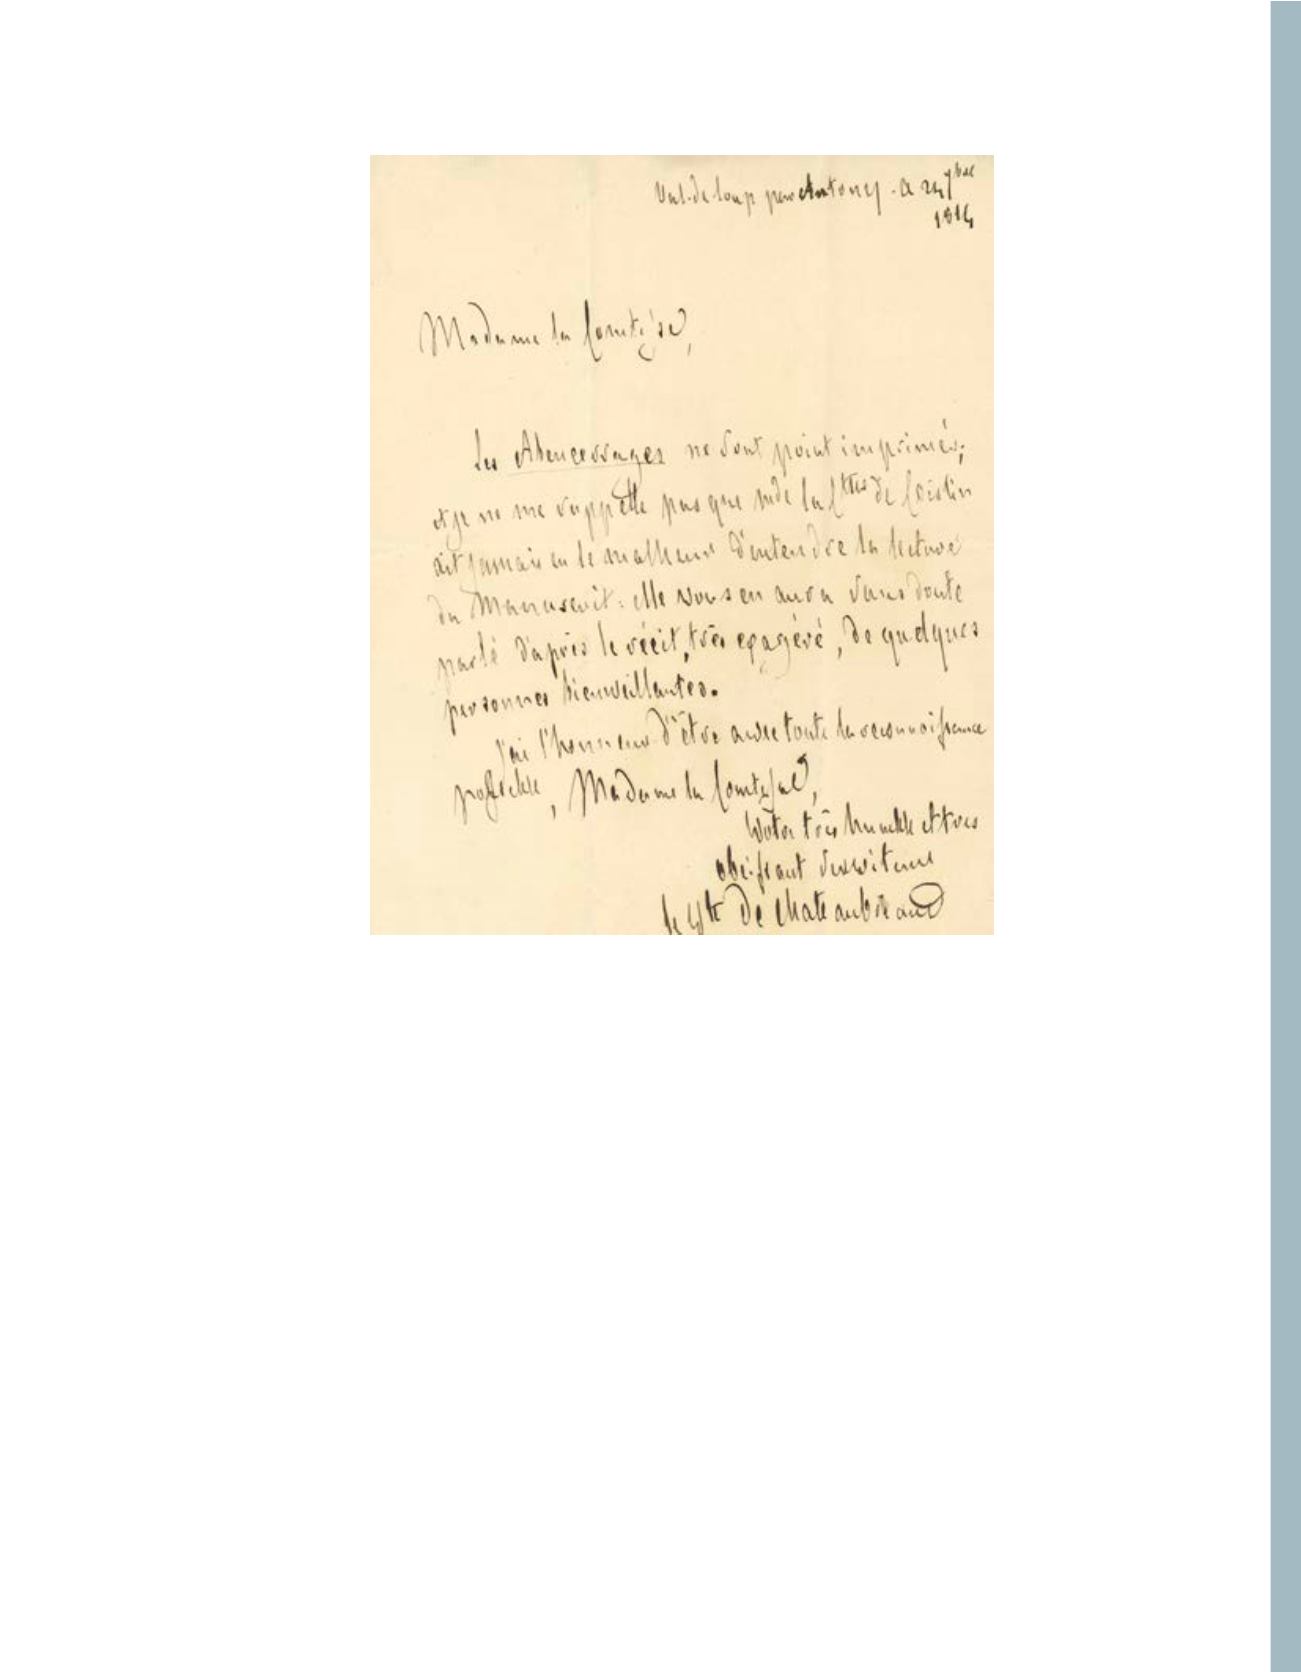 Val-de-loup par Antony. Ce 24 7bre
1814
Madame la Comtesse,
Les Abencerrages ne sont point imprimés;
et je ne me rappelle pas que mde la Ctesse de
ait jamais eu le malheur d'entendre la lecture
du Manuscrit: elle vous en aura sans doute
parlé d'après le récit, très exagéré, de quelques
personnes bienveillantes.
J'ai l'honneur d'être avec toute la reconnoissance
possible, Madame la Comtesse,
Votre très humble et très
obéissant serviteur
le Vte de Chateaubriand